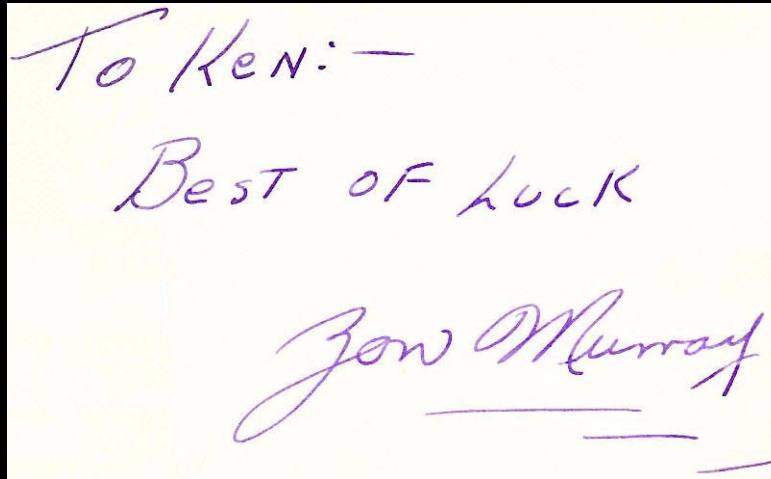 To Ken:—
Best of Luck
Zon Murray